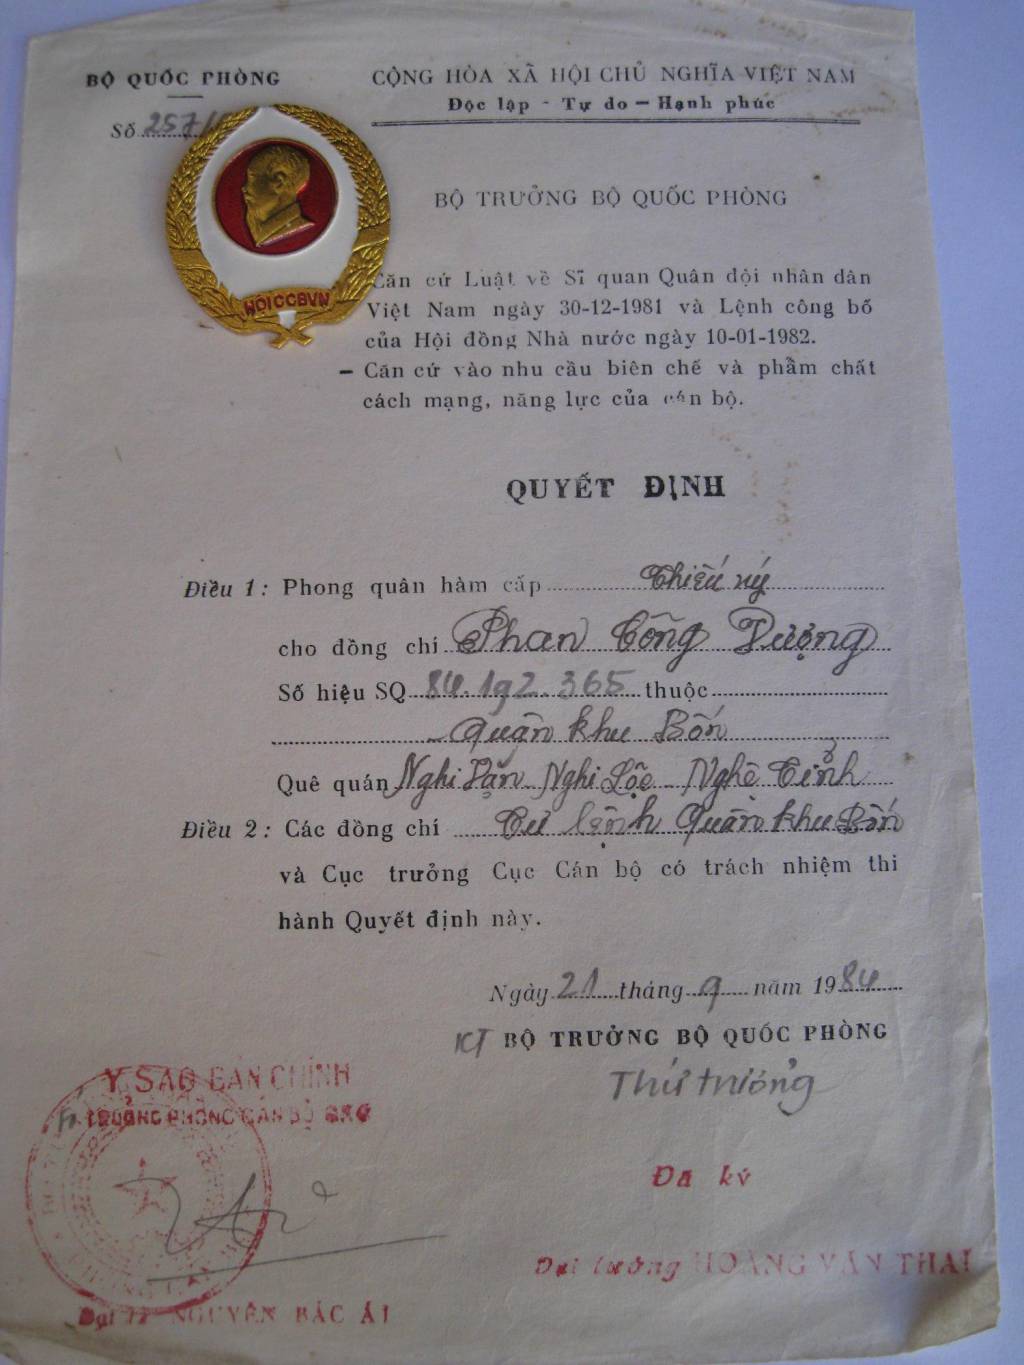 BỘ QUỐC PHÒNG
CỘNG HÒA XÃ HỘI CHỦ NGHĨA VIỆT NAM
Độc lập - Tự do - Hạnh phúc
Số 257/
BỘ TRƯỞNG BỘ QUỐC PHÒNG
HỘI CCBVN
Căn cứ Luật về Sĩ quan Quân đội nhân dân
Việt Nam ngày 30-12-1981 và Lệnh công bố
của Hội đồng Nhà nước ngày 10-01-1982.
- Căn cứ vào nhu cầu biên chế và phẩm chất
cách mạng, năng lực của cán bộ.
QUYẾT ĐỊNH
Điều 1: Phong quân hàm cấp Thiếu úy
cho đồng chí Phan Công Dượng
Số hiệu SQ 84.192.365 thuộc
Quân khu Bốn
Quê quán Nghi Vạn Nghi Lộc Nghệ Tĩnh
Điều 2: Các đồng chí Tư lệnh Quân khu Bốn
và Cục trưởng Cục Cán bộ có trách nhiệm thi
hành Quyết định này.
Ngày 21 tháng 9 năm 1984
KT BỘ TRƯỞNG BỘ QUỐC PHÒNG
Thứ trưởng
Y SAO BẢN CHÍNH
TRƯỞNG PHÒNG CÁN BỘ
Đã ký
Đại tướng HOÀNG VĂN THÁI
Đại tá NGUYỄN BẮC ÁI